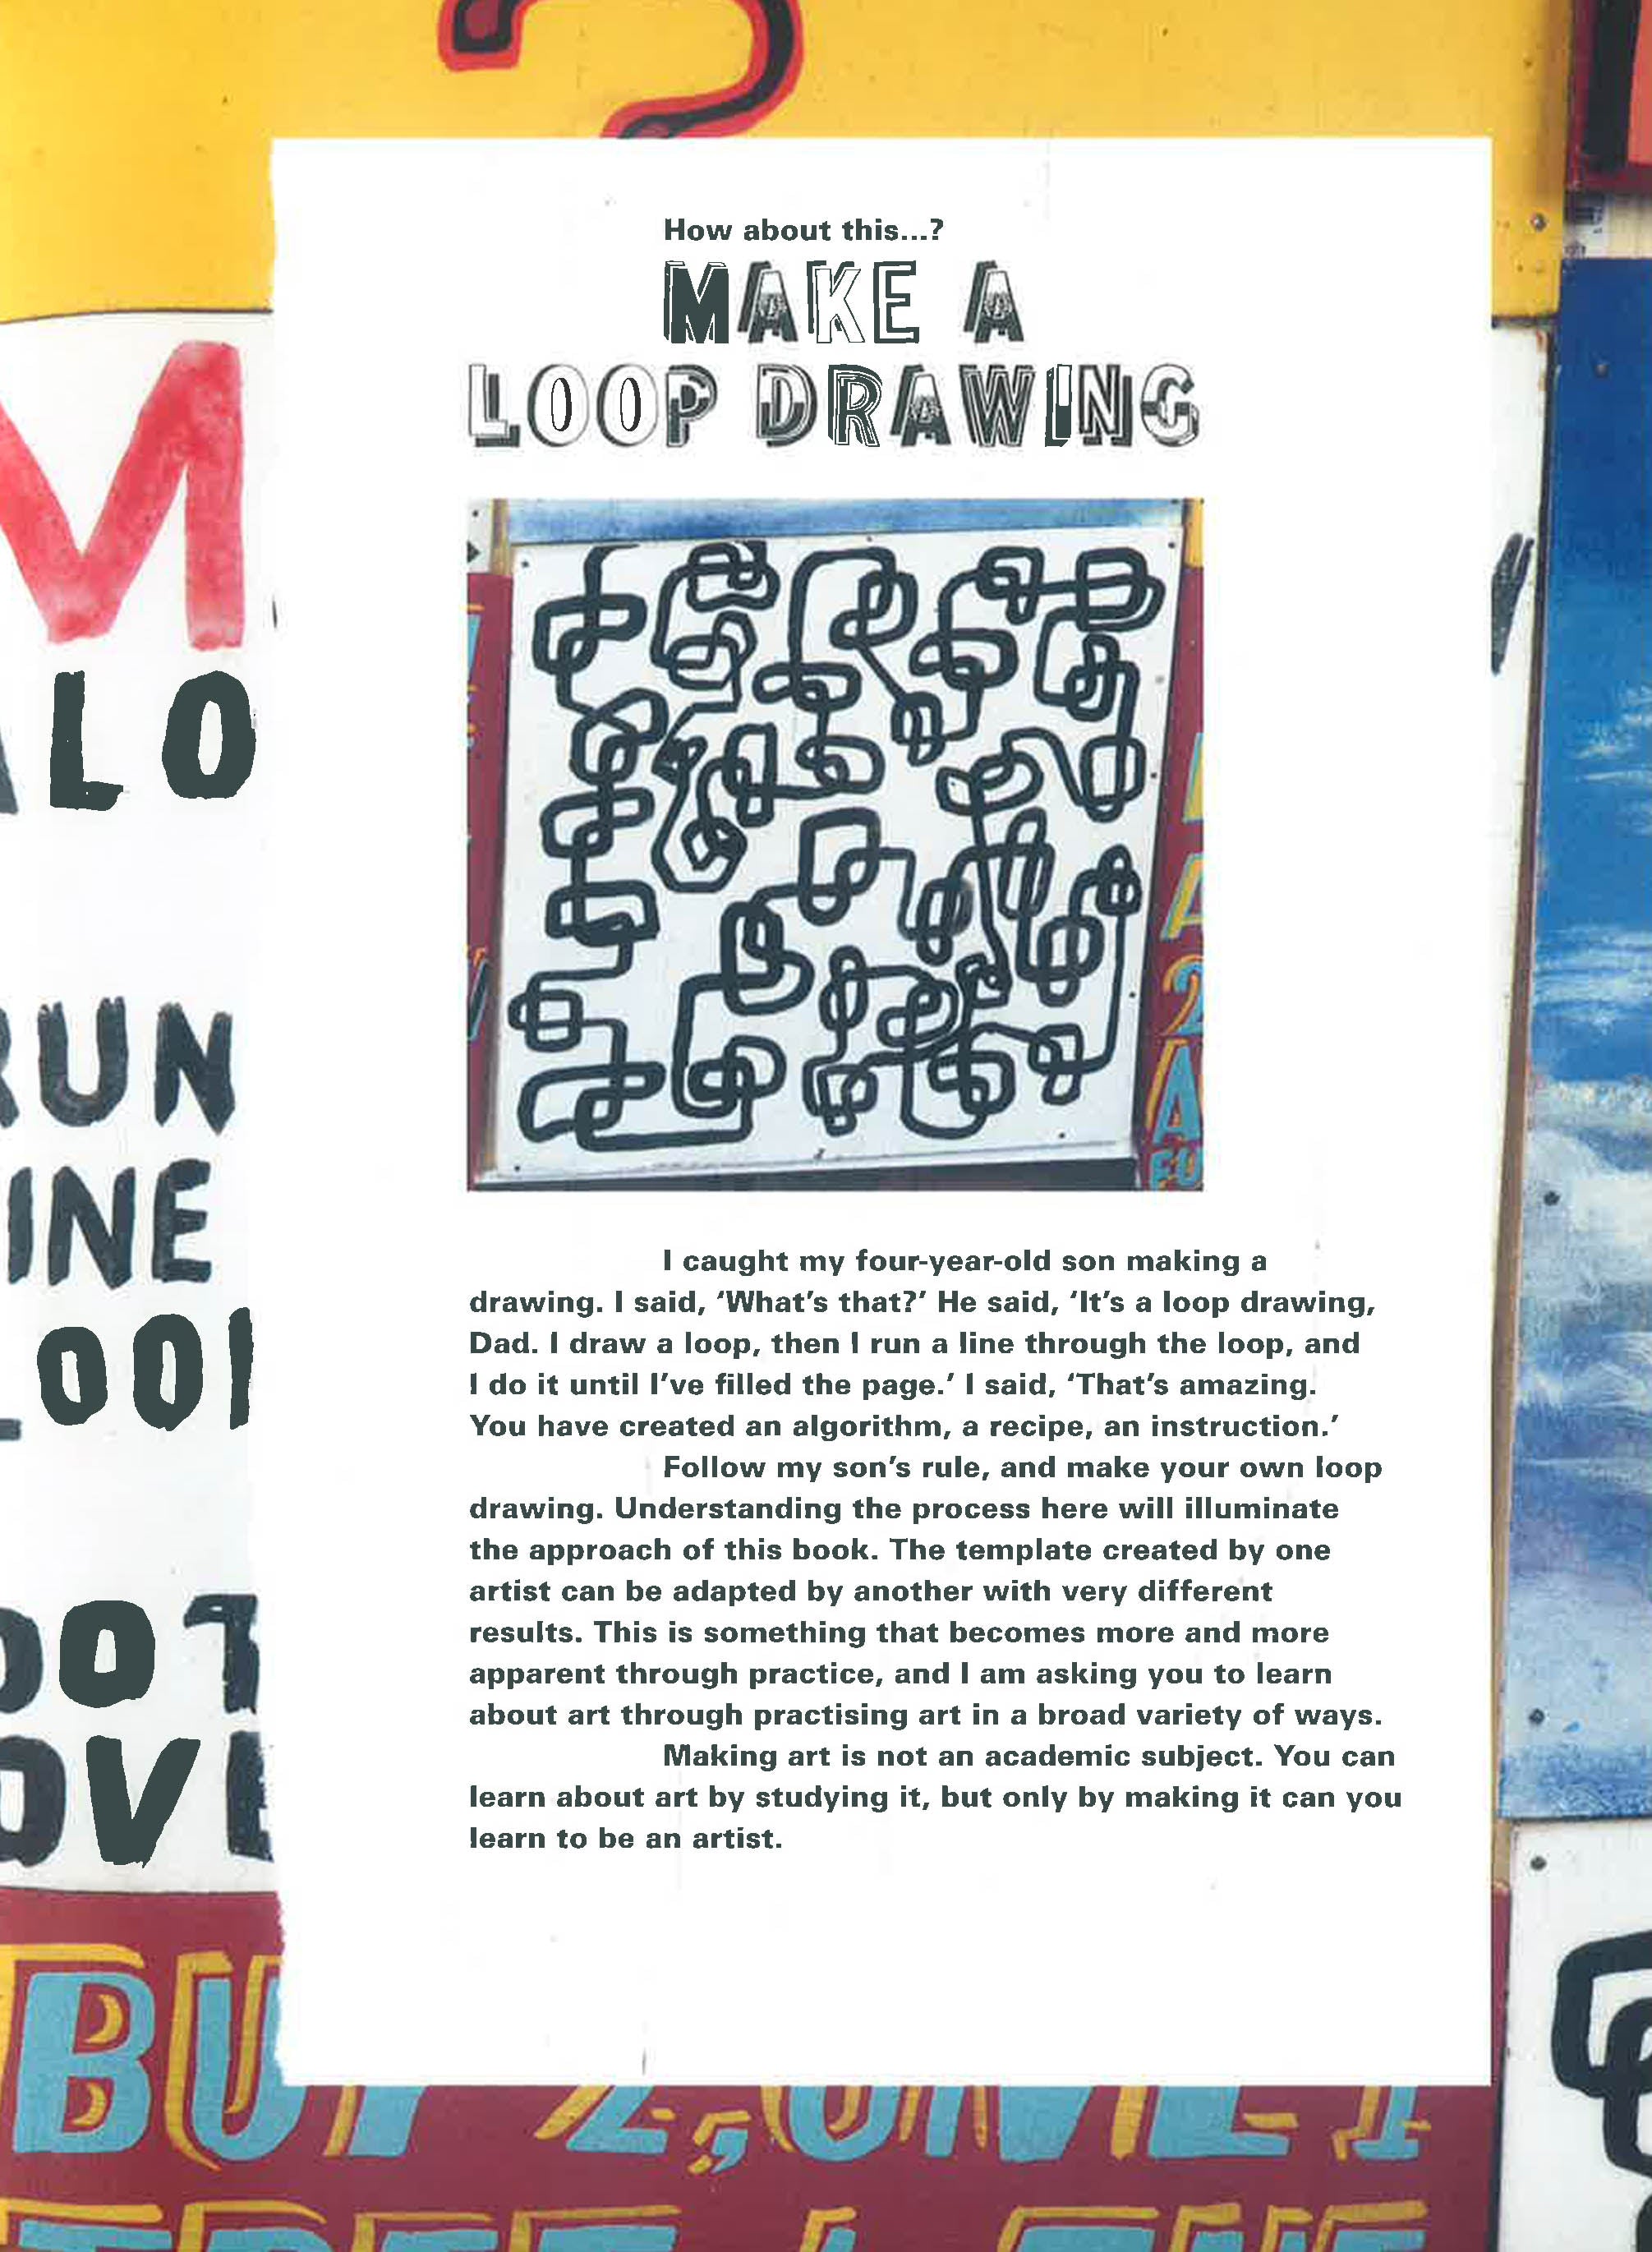 How about this...?
MAKE A
LOOP DRAWING
I caught my four-year-old son making a
drawing. I said, ‘What’s that?’ He said, ‘It’s a loop drawing,
Dad. I draw a loop, then I run a line through the loop, and
I do it until I’ve filled the page.’ I said, ‘That’s amazing.
You have created an algorithm, a recipe, an instruction.’
Follow my son’s rule, and make your own loop
drawing. Understanding the process here will illuminate
the approach of this book. The template created by one
artist can be adapted by another with very different
results. This is something that becomes more and more
apparent through practice, and I am asking you to learn
about art through practising art in a broad variety of ways.
Making art is not an academic subject. You can
learn about art by studying it, but only by making it can you
learn to be an artist.
M
LO
RUN
INE
LOO
OOT
OVE
BUY 2, ONE 1